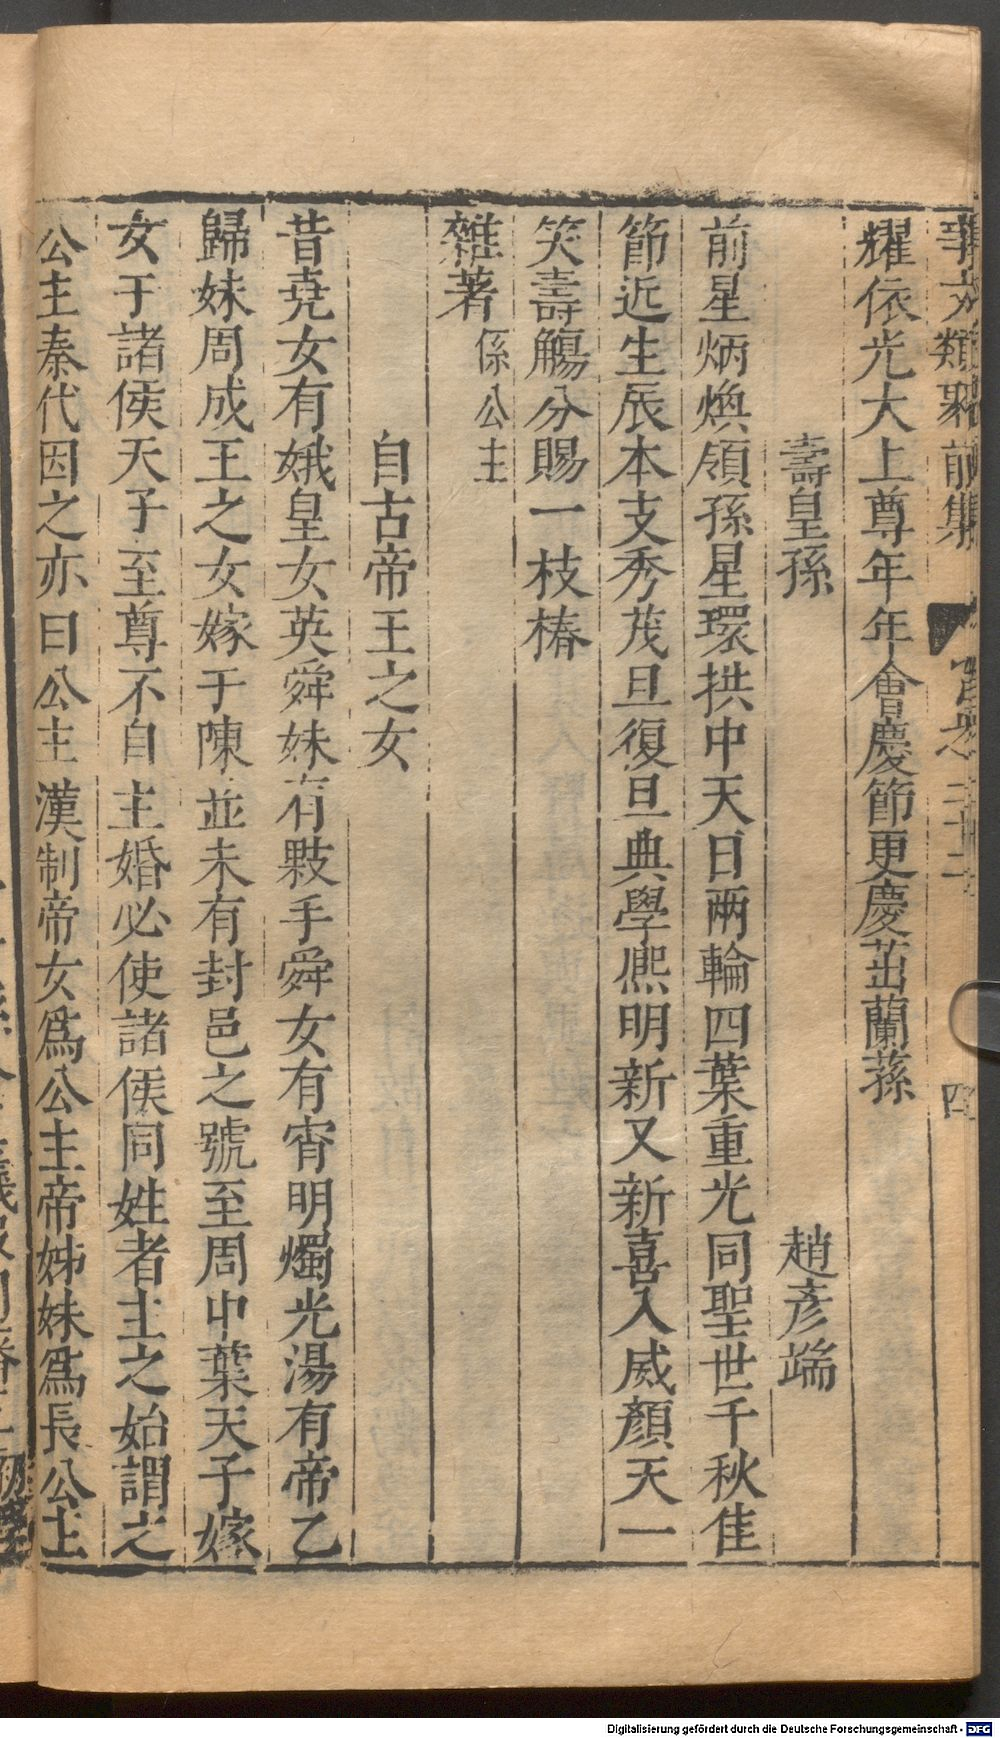 事文類聚前集 卷之二十二 四
耀依光大上尊年年會慶節更慶茁蘭蓀
壽皇孫 趙彦端
前星炳煥領孫星環拱中天日两輪四葉重光同聖世千秋佳
節近生辰本支秀茂旦復旦典學熈明新又新喜入威顏天一
笑壽觴分賜一枝椿
雜著 係公主
自古帝王之女
昔堯女有娥皇女英舜妹有敤手舜女有宵明燭光湯有帝乙
歸妹周成王之女嫁于陳並未有封邑之號至周中葉天子嫁
女于諸侯天子至尊不自主婚必使諸侯同姓者主之始謂之
公主秦代因之亦曰公主漢制帝女爲公主帝姊妹爲長公主
Digitalisierung gefördert durch die Deutsche Forschungsgemeinschaft - DFG